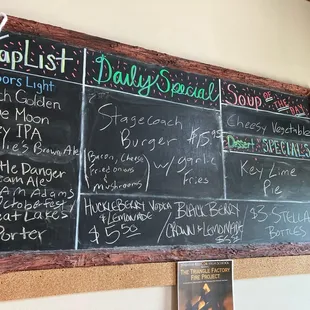 TapList
Coors Light
Golden
Moon
IPA
Brown Ale
Little Danger
Cream Ale
Sam Adams
Octoberfest /
Great Lakes
Porter
Daily Special
Stagecoach
Burger $15.95
(Bacon, Cheese,
Fried onions
&
mushrooms)
w/ garlic
Fries
HUCKLEBERRY VODKA
& LEMONADE
$5.50
BLACK BERRY
CROWN & LEMONADE
Soup OF THE DAY
Cheesy Vegetable
Dessert SPECIALS
Key Lime
Pie
$3 STELLA
BOTTLES
THE TRIANGLE FACTORY
FIRE PROJECT